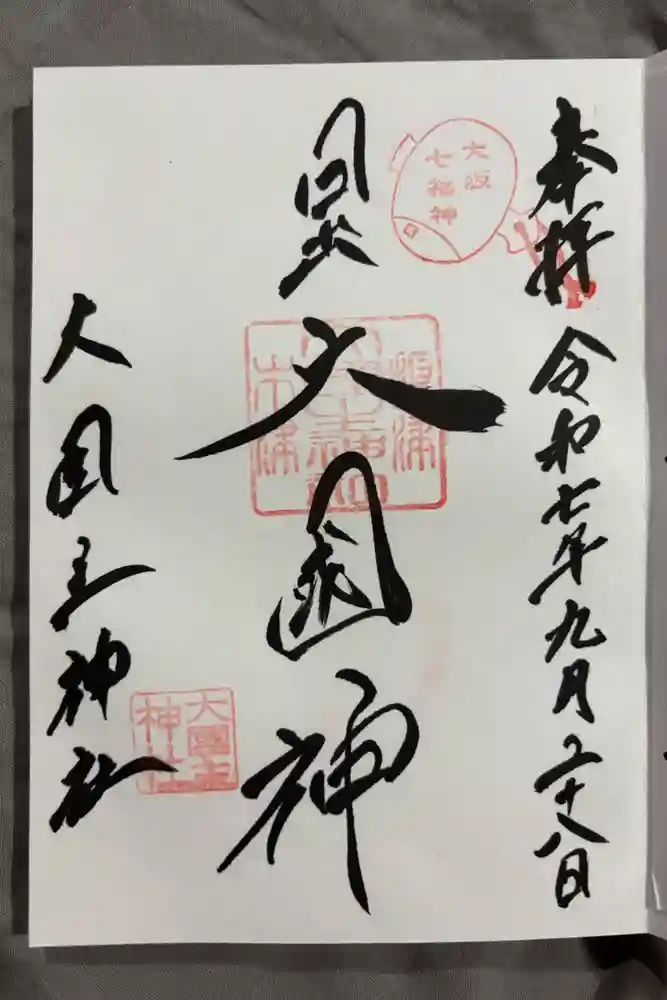 奉拝 令和七年九月二十八日
大阪
七福神
日出大國神
大国主神社
大國主
神社